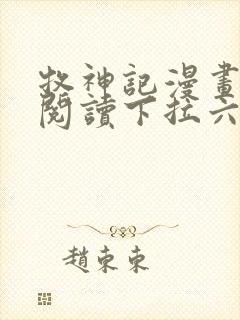 牧神記漫畫
閱讀下拉六
趙東東